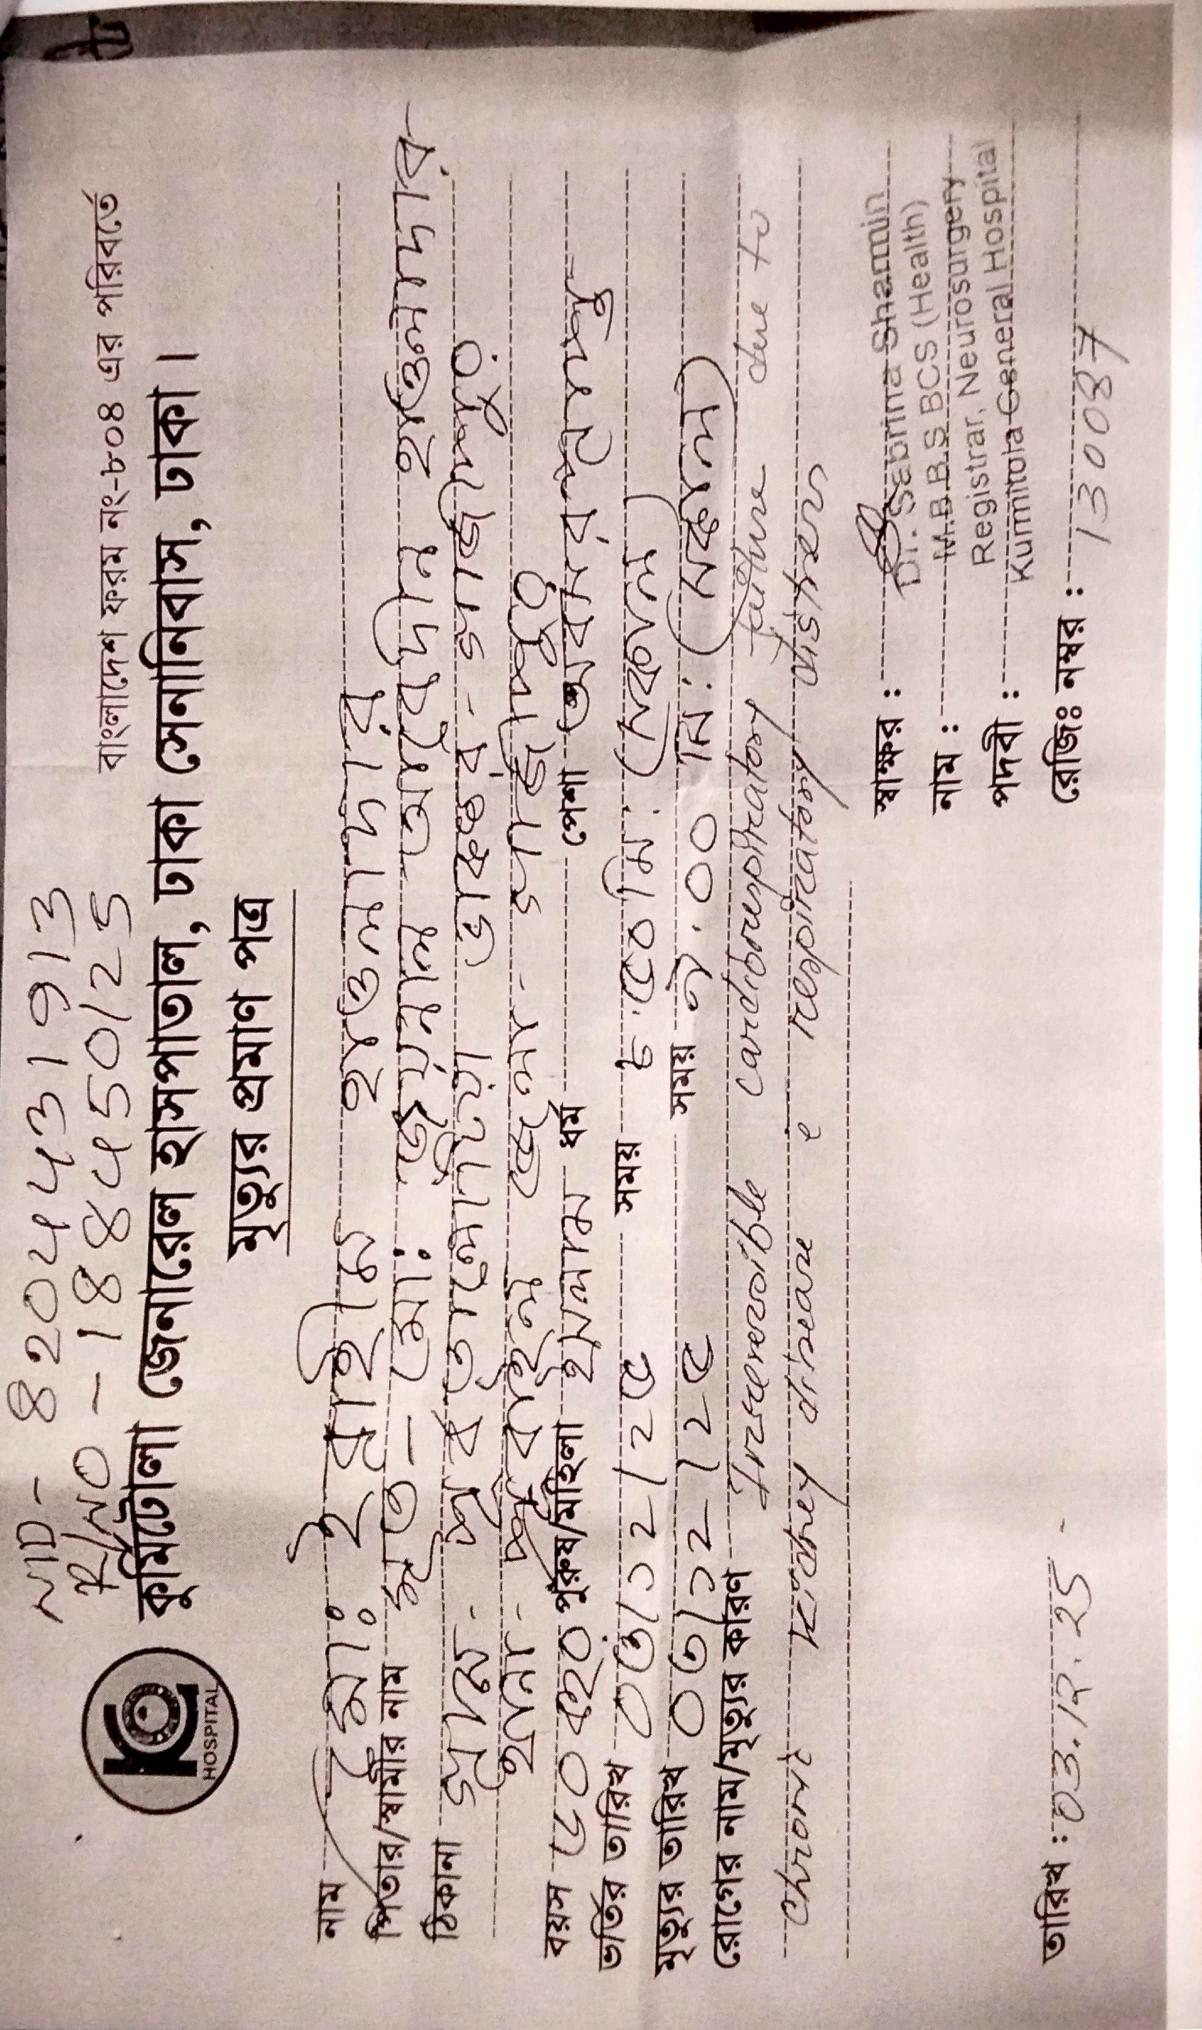 NID- 8204431913
R/NO - 188450/25
বাংলাদেশ ফরম নং-৮০৪ এর পরিবর্তে
কুর্মিটোলা জেনারেল হাসপাতাল, ঢাকা সেনানিবাস, ঢাকা।
HOSPITAL
মৃত্যুর প্রমাণ পত্র
নাম মো: ইব্রাহীম হাওলাদার
পিতার/স্বামীর নাম মৃত - মো: হাওলাদার
ঠিকানা গ্রাম- পূর্ব
থানা- জেলা-
বয়স পুরুষ/মহিলা ইসলাম ধর্ম পেশা অবসরপ্রাপ্ত
ভর্তির তারিখ ০৩/১২/২৫ সময় ৮.৫০ মি: (সকাল)
মৃত্যুর তারিখ ০৩/১২/২৫ সময় ৯.০০ মি: (সকাল)
রোগের নাম/মৃত্যুর কারণ Irreversible cardiorespiratory failure due to
chronic kidney disease c respiratory distress
স্বাক্ষর :
Dr. Sabrina Sharmin
নাম : M.B.B.S BCS (Health)
পদবী : Registrar, Neurosurgery
Kurmitola General Hospital
তারিখ : 03.12.25 রেজিঃ নম্বর : 130087